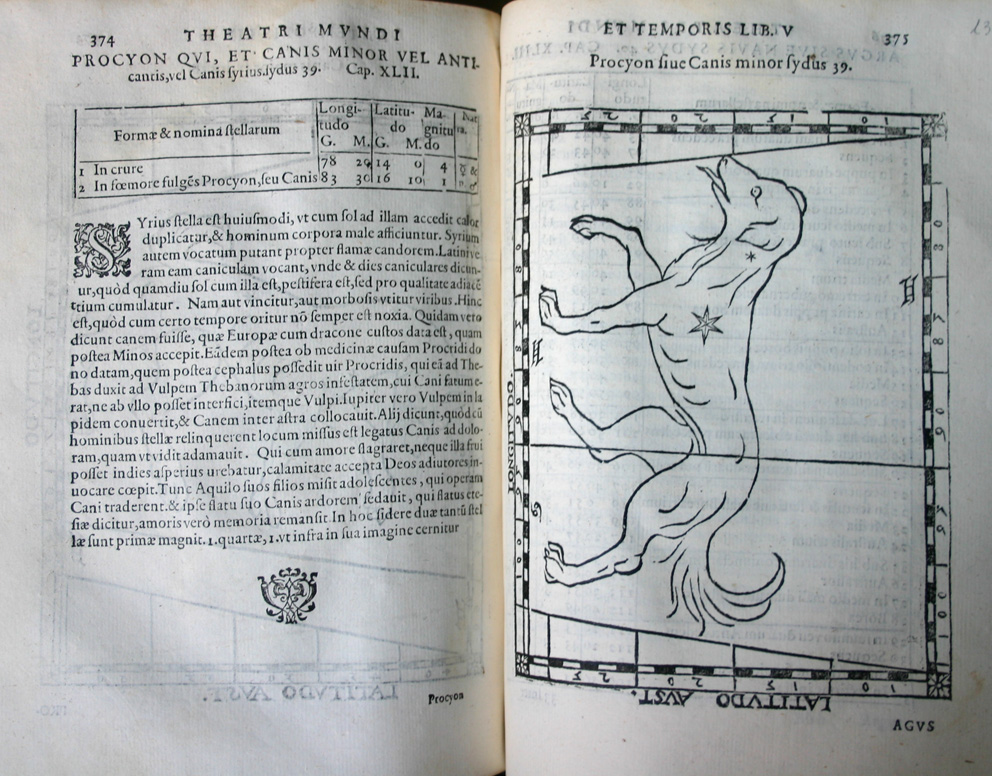 374
THEATRI MVNDI
PROCYON QVI, ET CANIS MINOR VEL ANTI-
cancis,vel Canis syrius.sydus 39. Cap. XLII.
Formæ & nomina stellarum
Longi-tudo G. M. Latitu-do G. M. Ma-gnitu do
1 In crure 78 29 14 0 4
2 In fœmore fulgēs Procyon,seu Canis 83 30 16 10 1
SYrius stella est huiusmodi, vt cum sol ad illam accedit calor
duplicatur,& hominum corpora male afficiuntur. Syrium
autem vocatum putant propter flamæ candorem.Latini ve
ram eam caniculam vocant, vnde & dies caniculares dicun-
ur,quòd quamdiu sol cum illa est,pestifera est,sed pro qualitate adiacē
tium cumulatur. Nam aut vincitur,aut morbosis vtitur viribus.Hinc
est,quòd cum certo tempore oritur nō semper est noxia. Quidam vero
dicunt canem fuisse, quæ Europæ cum dracone custos data est, quam
postea Minos accepit.Eādem postea ob medicinæ causam Procridi do
no datam,quem postea cephalus possedit uir Procridis, qui eā ad The-
bas duxit ad Vulpem Thebanorum agros infestatem,cui Cani fatum e-
rat,ne ab vllo posset interfici,itemque Vulpi.Iupiter vero Vulpem in la
pidem conuertit,& Canem inter astra collocauit.Alij dicunt,quòd cū
hominibus stellæ relinquerent locum missus est legatus Canis ad dolo-
ram,quam vt vidit adamauit. Qui cum amore flagraret,neque illa frui
posset indies asperius urebatur,calamitate accepta Deos adiutores in-
uocare cœpit.Tunc Aquilo suos filios misit adolescentes, qui operam
Cani traderent.& ipse flatu suo Canis ardorem sedauit, qui flatus ete-
siæ dicitur,amoris verò memoria remansit.In hoc sidere duæ tantū stel
læ sunt primæ magnit.1.quartæ,1.vt infra in sua imagine cernitur
Procyon
ET TEMPORIS LIB. V
375
Procyon siue Canis minor sydus 39.
LONGITVDO.
LATITVDO AVST.
AGVS